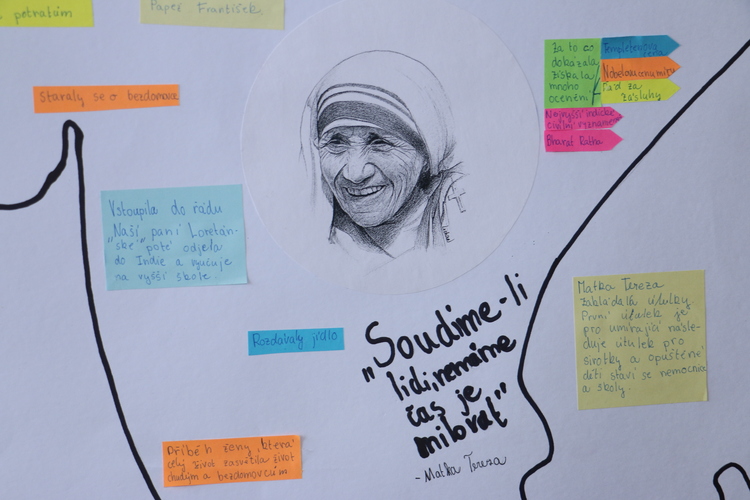 potratům
Papež František.
Staraly se o bezdomovce
Za to
dokázala
získala
mnoho
ocenění
Templetonova cena
Nobelova cenu míru
Řád za
zásluhy
Nejvyšší indické
civilní vyznamenání
Bharat Ratna
Vstoupila do řádu
„Naší paní Loretán-
ské" poté odjela
do Indie a vyučuje
na vyšší škole.
Rozdávaly jídlo
„Soudíme-li
lidi, nemáme
čas je
milovat"
- Matka Tereza
Matka Tereza
zakládala útulky
První útulek je
pro umírající násle-
duje útulek pro
sirotky a opuštěné
děti staví se nemocnice
a školy.
Příběh ženy, která
celý život zasvětila život
chudým a bezdomovcům